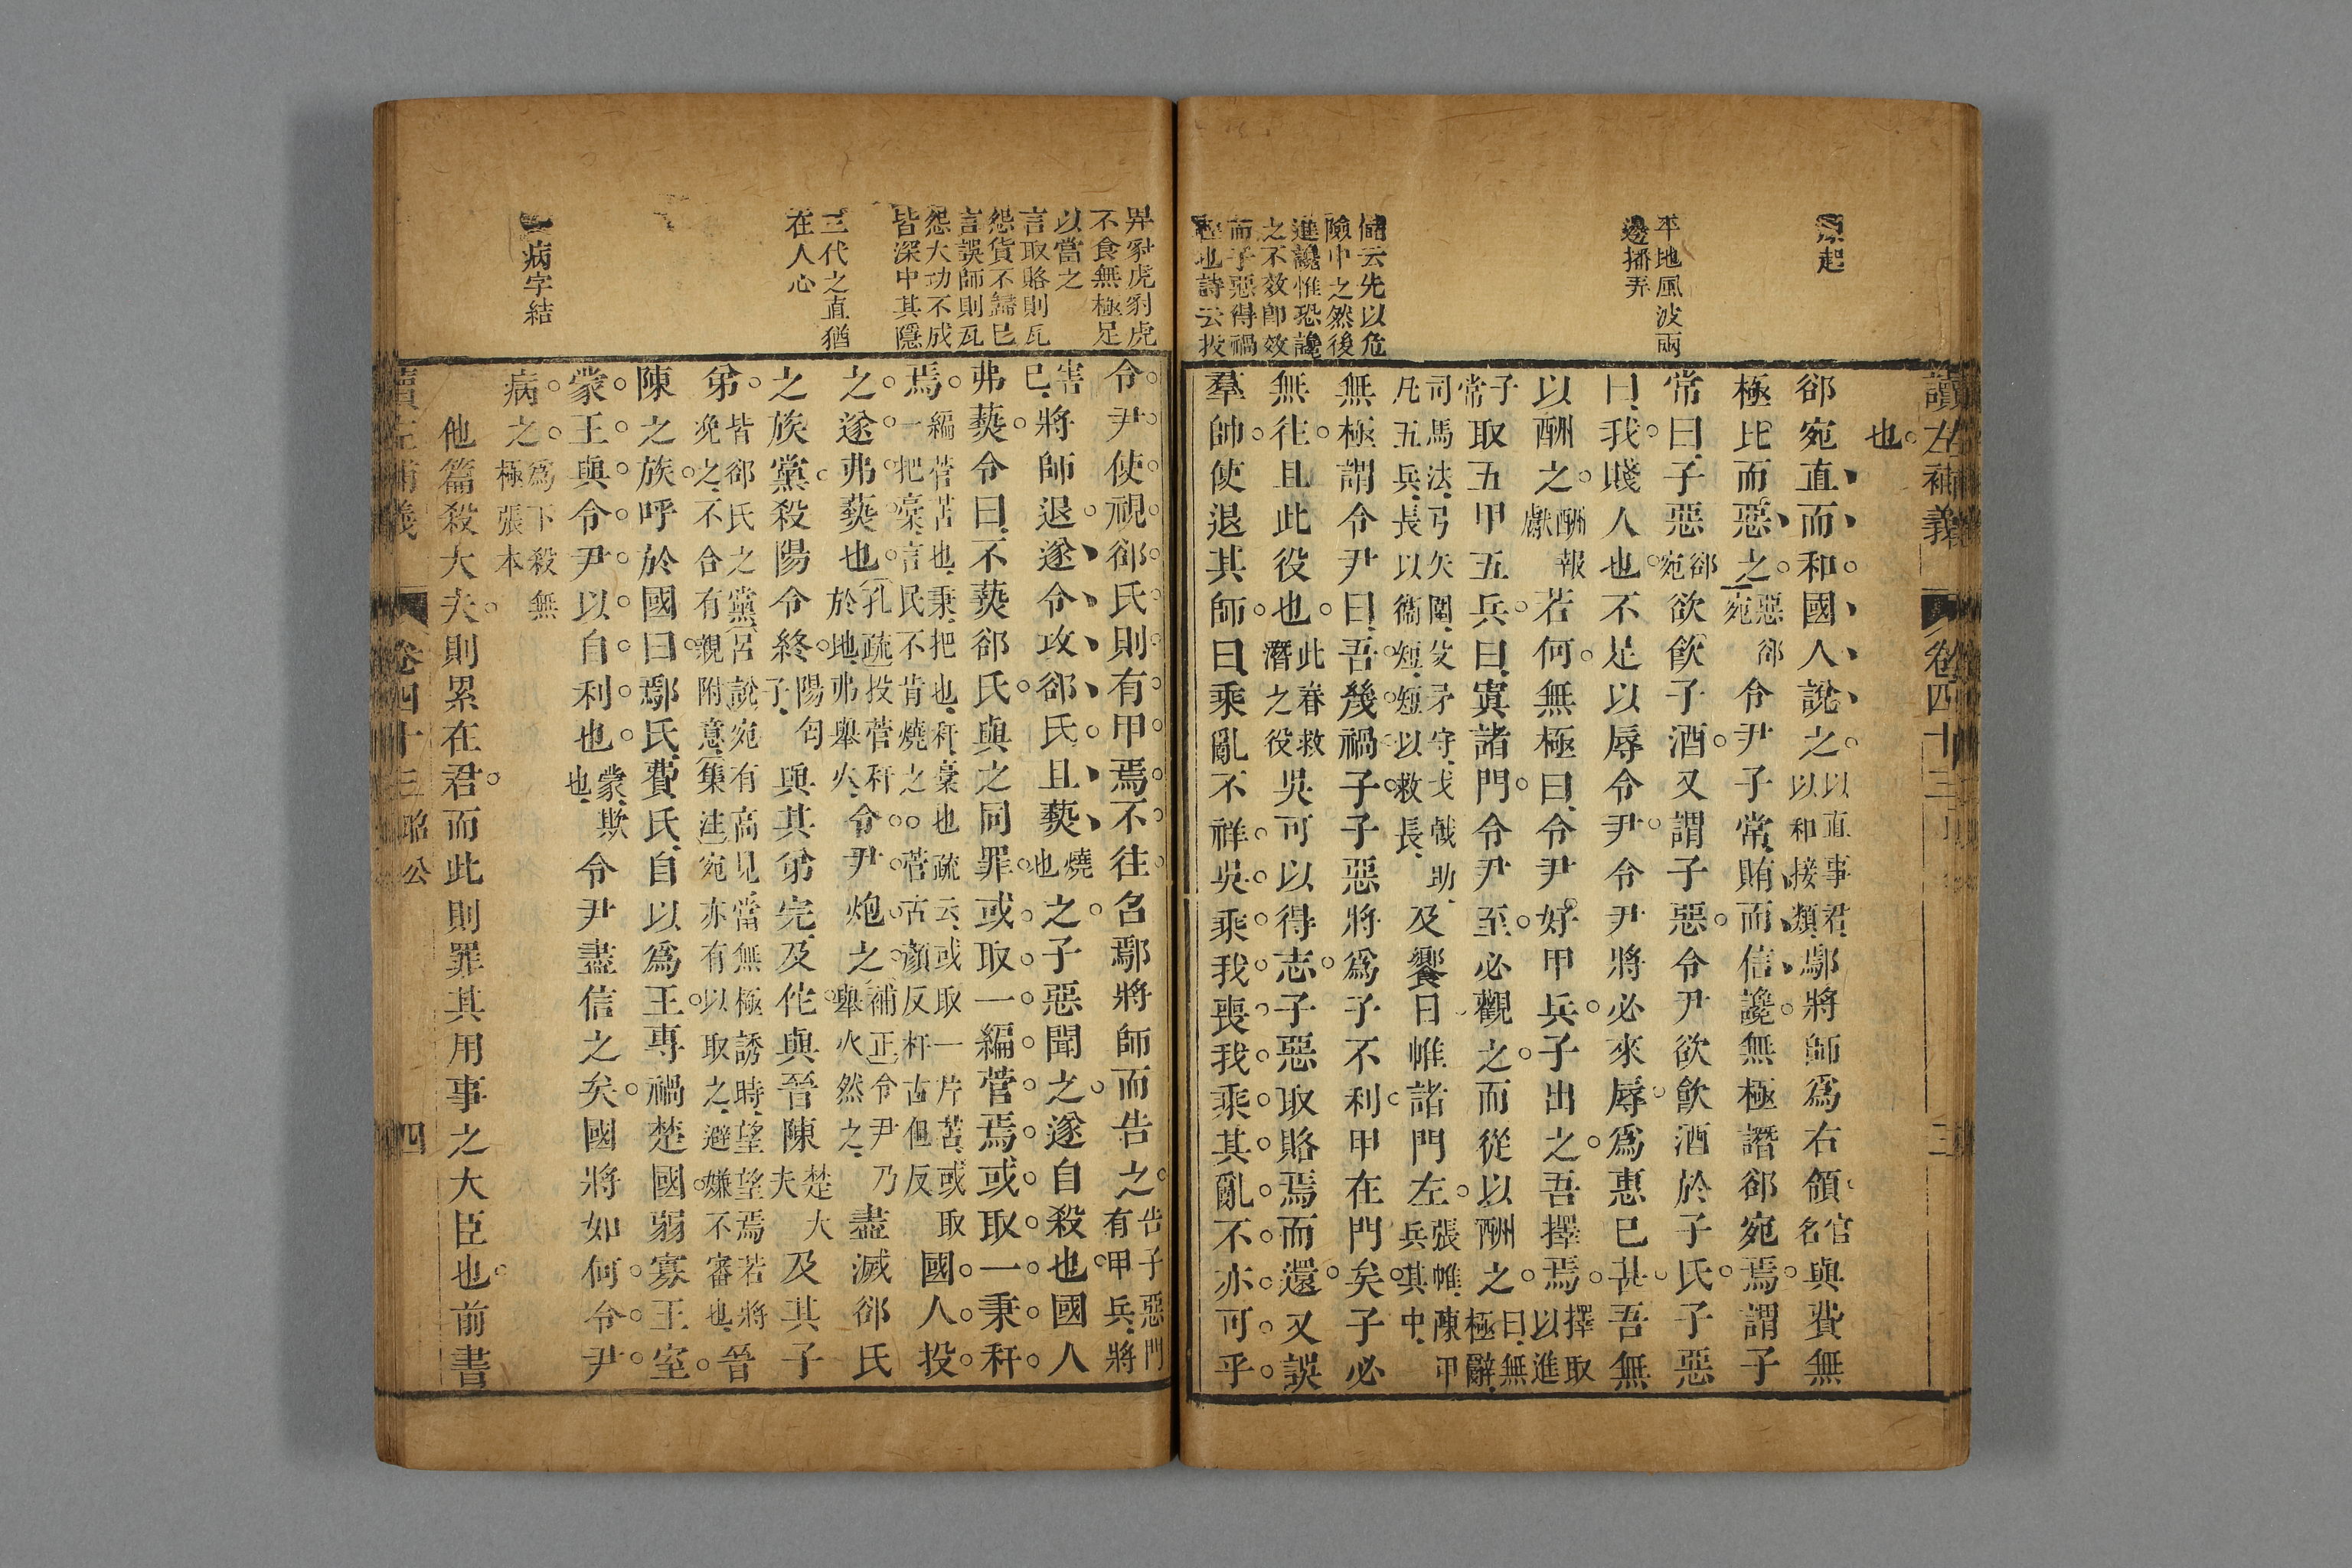 讀左補義 卷四十三 三
原起
平地風波兩
邊播弄
儲云先以危
險中之然後
進讒惟恐讒
之不效卽效
而子惡得禍
也詩云投
也
郤宛直而和國人說之以直事君以和接類鄢將師爲右領官名與費無
極比而惡之惡郤宛令尹子常賄而信讒無極譖郤宛焉謂子
常曰子惡郤宛欲飮子酒又謂子惡令尹欲飮酒於子氏子惡
曰我賤人也不足以辱令尹令尹將必來辱爲惠已甚吾無
以酬之酬報獻若何無極曰令尹好甲兵子出之吾擇焉擇取以進
子常取五甲五兵曰寘諸門令尹至必觀之而從以酬之曰無極辭
司馬法弓矢圍殳矛守戈戟助凡五兵長以衞短短以救長及饗日帷諸門左張帷陳甲兵其中
無極謂令尹曰吾幾禍子子惡將爲子不利甲在門矣子必
無往且此役也此春救潛之役吳可以得志子惡取賂焉而還又誤
羣帥使退其師曰乘亂不祥吳乘我喪我乘其亂不亦可乎
畀豺虎豺虎
不食無極足
以當之
言取賂則瓦
怨貨不歸已
言誤師則瓦
怨大功不成
皆深中其隱
三代之直猶
在人心
病字結
令尹使視郤氏則有甲焉不往召鄢將師而告之告子惡門有甲兵將
害已將師退遂令攻郤氏且爇燒也之子惡聞之遂自殺也國人
弗爇令曰不爇郤氏與之同罪或取一編菅焉或取一秉秆
焉編菅苫也秉把也秆稾也疏云或取一片苫或取一把稾言民不肯燒之○菅古顏反秆古但反國人投
之遂弗爇也孔疏投菅秆於地弗舉火令尹炮之補正令尹乃舉火然之盡滅郤氏
之族黨殺陽令終陽匄子與其弟完及佗與晉陳楚大夫及其子
弟皆郤氏之黨呂說宛有高見當無極誘時望望焉若將浼之不合有親附意集註宛亦有以取之避嫌不審也晉
陳之族呼於國曰鄢氏費氏自以爲王專禍楚國弱寡王室
蒙王與令尹以自利也蒙欺也令尹盡信之矣國將如何令尹
病之爲下殺無極張本
他篇殺大夫則累在君而此則罪其用事之大臣也前書
讀左補義 卷四十三 昭公 四